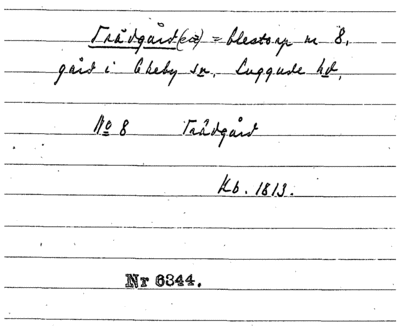 Trädgård(en) = Olestorp nr 8,
gård i Ekeby sn, Luggude hd,
No 8 Trädgård
Hb. 1813.
Nr 6344.